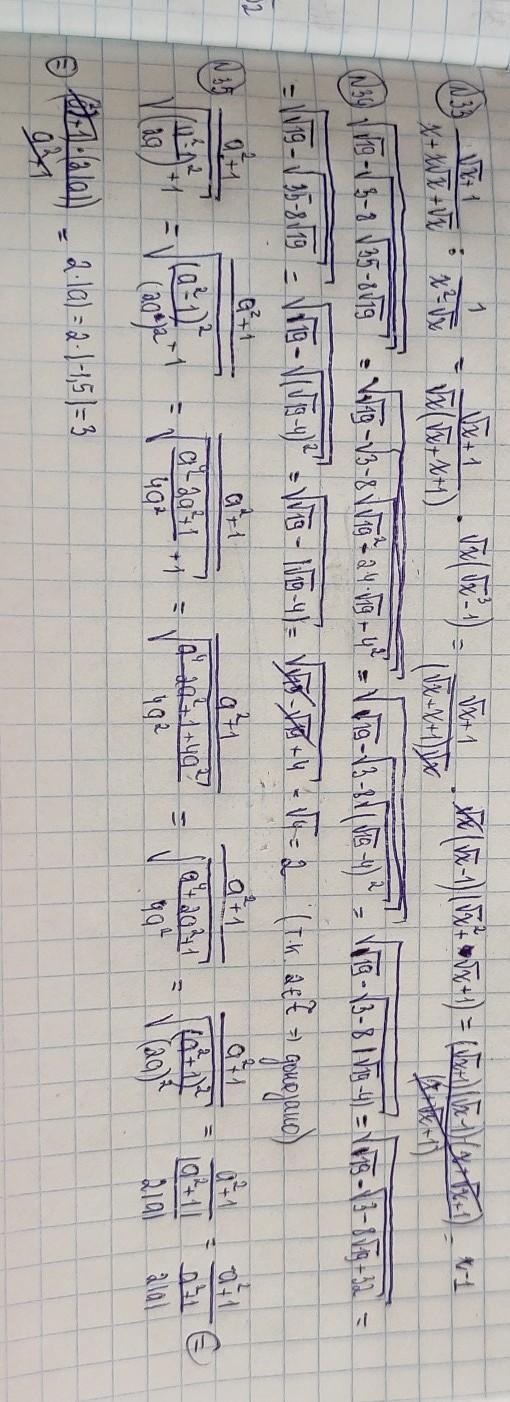 №33 (√x+1)/(x+x√x+√x) : 1/(x²-√x) = (√x+1)/(√x(√x+x+1)) · √x(√x³-1) = (√x+1)/((√x+x+1)√x) · √x(√x-1)(√x²+√x+1) = (√x+1)(√x-1)(x+√x+1)/(x+√x+1) = x-1
№34 √(√19-√(3-8√(35-8√19))) = √(√19-√(3-8√(√19²-2·4·√19+4²))) = √(√19-√(3-8√(√19-4)²)) = √(√19-√(3-8|√19-4|)) = √(√19-√(3-8√19+32)) =
= √(√19-√(35-8√19)) = √(√19-√(√19-4)²) = √(√19-|√19-4|) = √(√19-√19+4) = √4 = 2 (т.к 2∈ℤ ⇒ доказано)
№35 (a²+1)/√(((a²-1)/(2a))²+1) = (a²+1)/√((a²-1)²/(2a)²+1) = (a²+1)/√((a⁴-2a²+1)/(4a²)+1) = (a²+1)/√((a⁴-2a²+1+4a²)/(4a²)) = (a²+1)/√((a⁴+2a²+1)/(4a²)) = (a²+1)/√((a²+1)²/(2a)²) = (a²+1)/(|a²+1|/(2|a|)) = (a²+1)/((a²+1)/(2|a|)) =
= (a²+1)·(2|a|)/(a²+1) = 2·|a| = 2·|-1,5| = 3